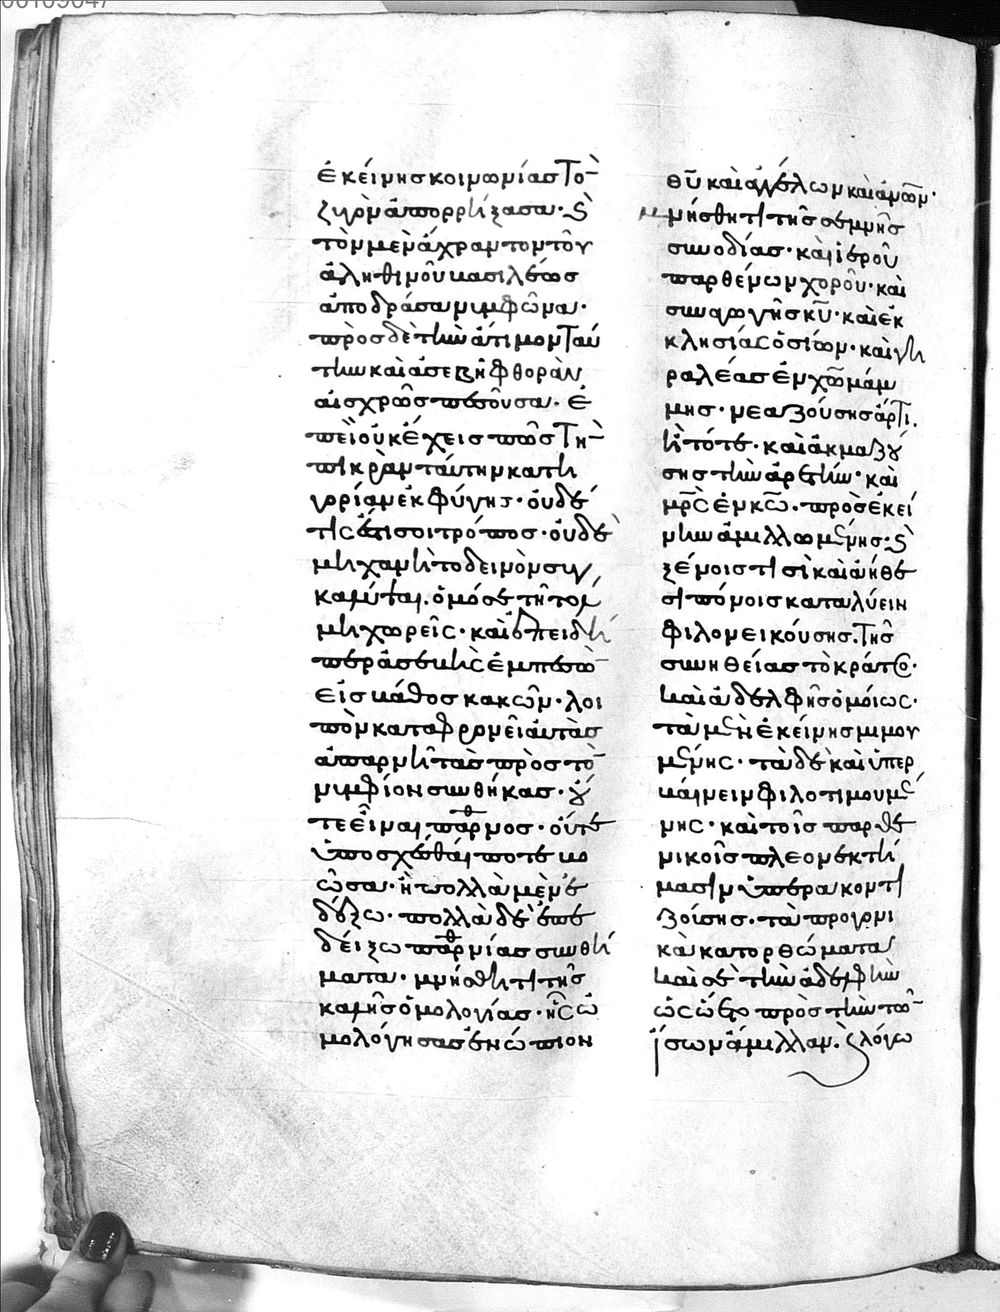 ἐκείνης κοινωνίας τὸ
ζυγὸν ἀπορρήξασα· καὶ
τὸν μὲν ἄχραντον τοῦ
ἀληθινοῦ βασιλέως
ἀποδράσα νυμφῶνα·
πρὸς δὲ τὴν ἄτιμον ταύ
την καὶ ἀσεβῆ φθορὰν
αἰσχρῶς πεσοῦσα· ἐ
πεὶ οὐκ ἔχεις πῶς τὴν
πικρὰν ταύτην κατη
γορίαν ἐκφύγης· οὐδέ
τίς ἐστί σοι τρόπος· οὐδὲ
μηχανὴ τὸ δεινὸν συγ
καλύψαι· ὁμόσε τῇ τολ
μῃ χωρεῖς· καὶ ἐπειδὴ
περ ἀσεβὴς ἐμπεσὼν
εἰς βάθος κακῶν· λοι
πὸν καταφρονεῖ αὐτὰς
ἀπαρνῇ τὰς πρὸς τὸν
νυμφίον συνθήκας· οὔ
τε εἶναι παρθένος· οὔτε
ὑποσχέσθαι ποτε βο
ῶσα· ἣ πολλὰ μὲν ἐ
δέξω· πολλὰ δὲ ἐπε
δείξω παρθενίας συνθή
ματα· μνήσθητι τῆς
καλῆς ὁμολογίας· ἧς ὡ
μολόγησας ἐνώπιον
θῡ καὶ ἀγγέλων καὶ ἀνω̅ν·
μνήσθητι τῆς σεμνῆς
συνοδίας· καὶ ἱεροῦ
παρθένων χοροῦ· καὶ
συναγωγῆς κῡ· καὶ ἐκ
κλησίας ὁσίων· καὶ γη
ραλέας ἐν χω̅ μάμ
μης· νεαζούσης ἄρτι
ἢ τότε· καὶ ἀκμαζού
σης τὴν ἀρετήν· καὶ
μρ̅ς ἐν κω̅· πρὸς ἐκεί
νην ἁμιλλωμένης· καὶ
ξένοις τισὶ καὶ ἀήθε
σι πόνοις καταλύειν
φιλονεικούσης· τῆς
συνηθείας τὸ κράτος·
καὶ ἀδελφῆς ὁμοίως·
τὰ μὲν ἐκείνης μιμου
μένης· τὰ δὲ καὶ ὑπερ
βαίνειν φιλοτιμουμέ
νης· καὶ τοῖς παρθε
νικοῖς πλεονεκτή
μασιν ὑπερακοντι
ζούσης· τὰ προγονι
κὰ κατορθώματα·
καὶ σὲ τὴν ἀδελφὴν
ὡς ᾤετο πρὸς τὴν τῶν
ἴσων ἅμιλλαν· καὶ λόγω